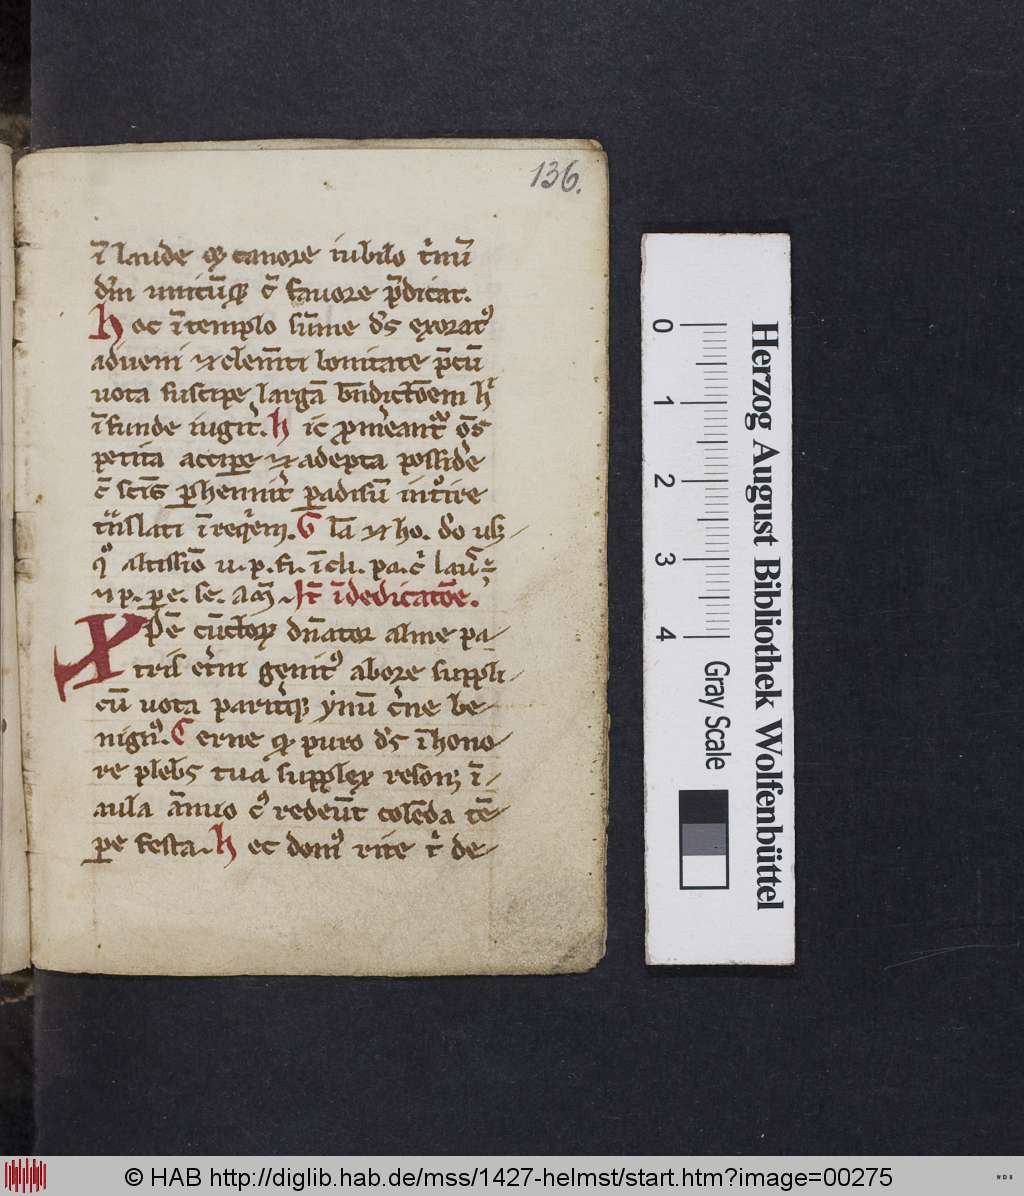 136.
ī laude ⁊ canore iubilo t'nū
dm̄ unicūq; c̄ fauore p̄dicat.
hoc ī templo sūme ds̄ exorat9
adueni ⁊ clem̄ti bonitate p̄cū
uota suscipe largā bn̄dictōem h'
īfunde iugit'. hic ꝓm̄eant' om̄s
petita accipe ⁊ adepta posside
c̄ scīs perhennit' paradisū int'oire
t'nslati ī requiem. G la ⁊ ho. do usq;
q° altissīo u. p. fi. īcli. pa. c' lau
⁊ p. pe. se. am̄. It' ī dedicatōe.
Xpē cūctoꝝ dn̄ator alme pa-
tris et'ni genit9 abore suppli-
cū uota parit'q; ẏnū c'ne be-
nign9. Cerne q puro ds̄ ī hono-
re plebs tua supplex resonȝ ī
aula ānuo c9 redeūt colēda tē-
pe festa. hec dom9 rite t' de-
0 1 2 3 4
Gray Scale
Herzog August Bibliothek Wolfenbüttel
© HAB http://diglib.hab.de/mss/1427-helmst/start.htm?image=00275